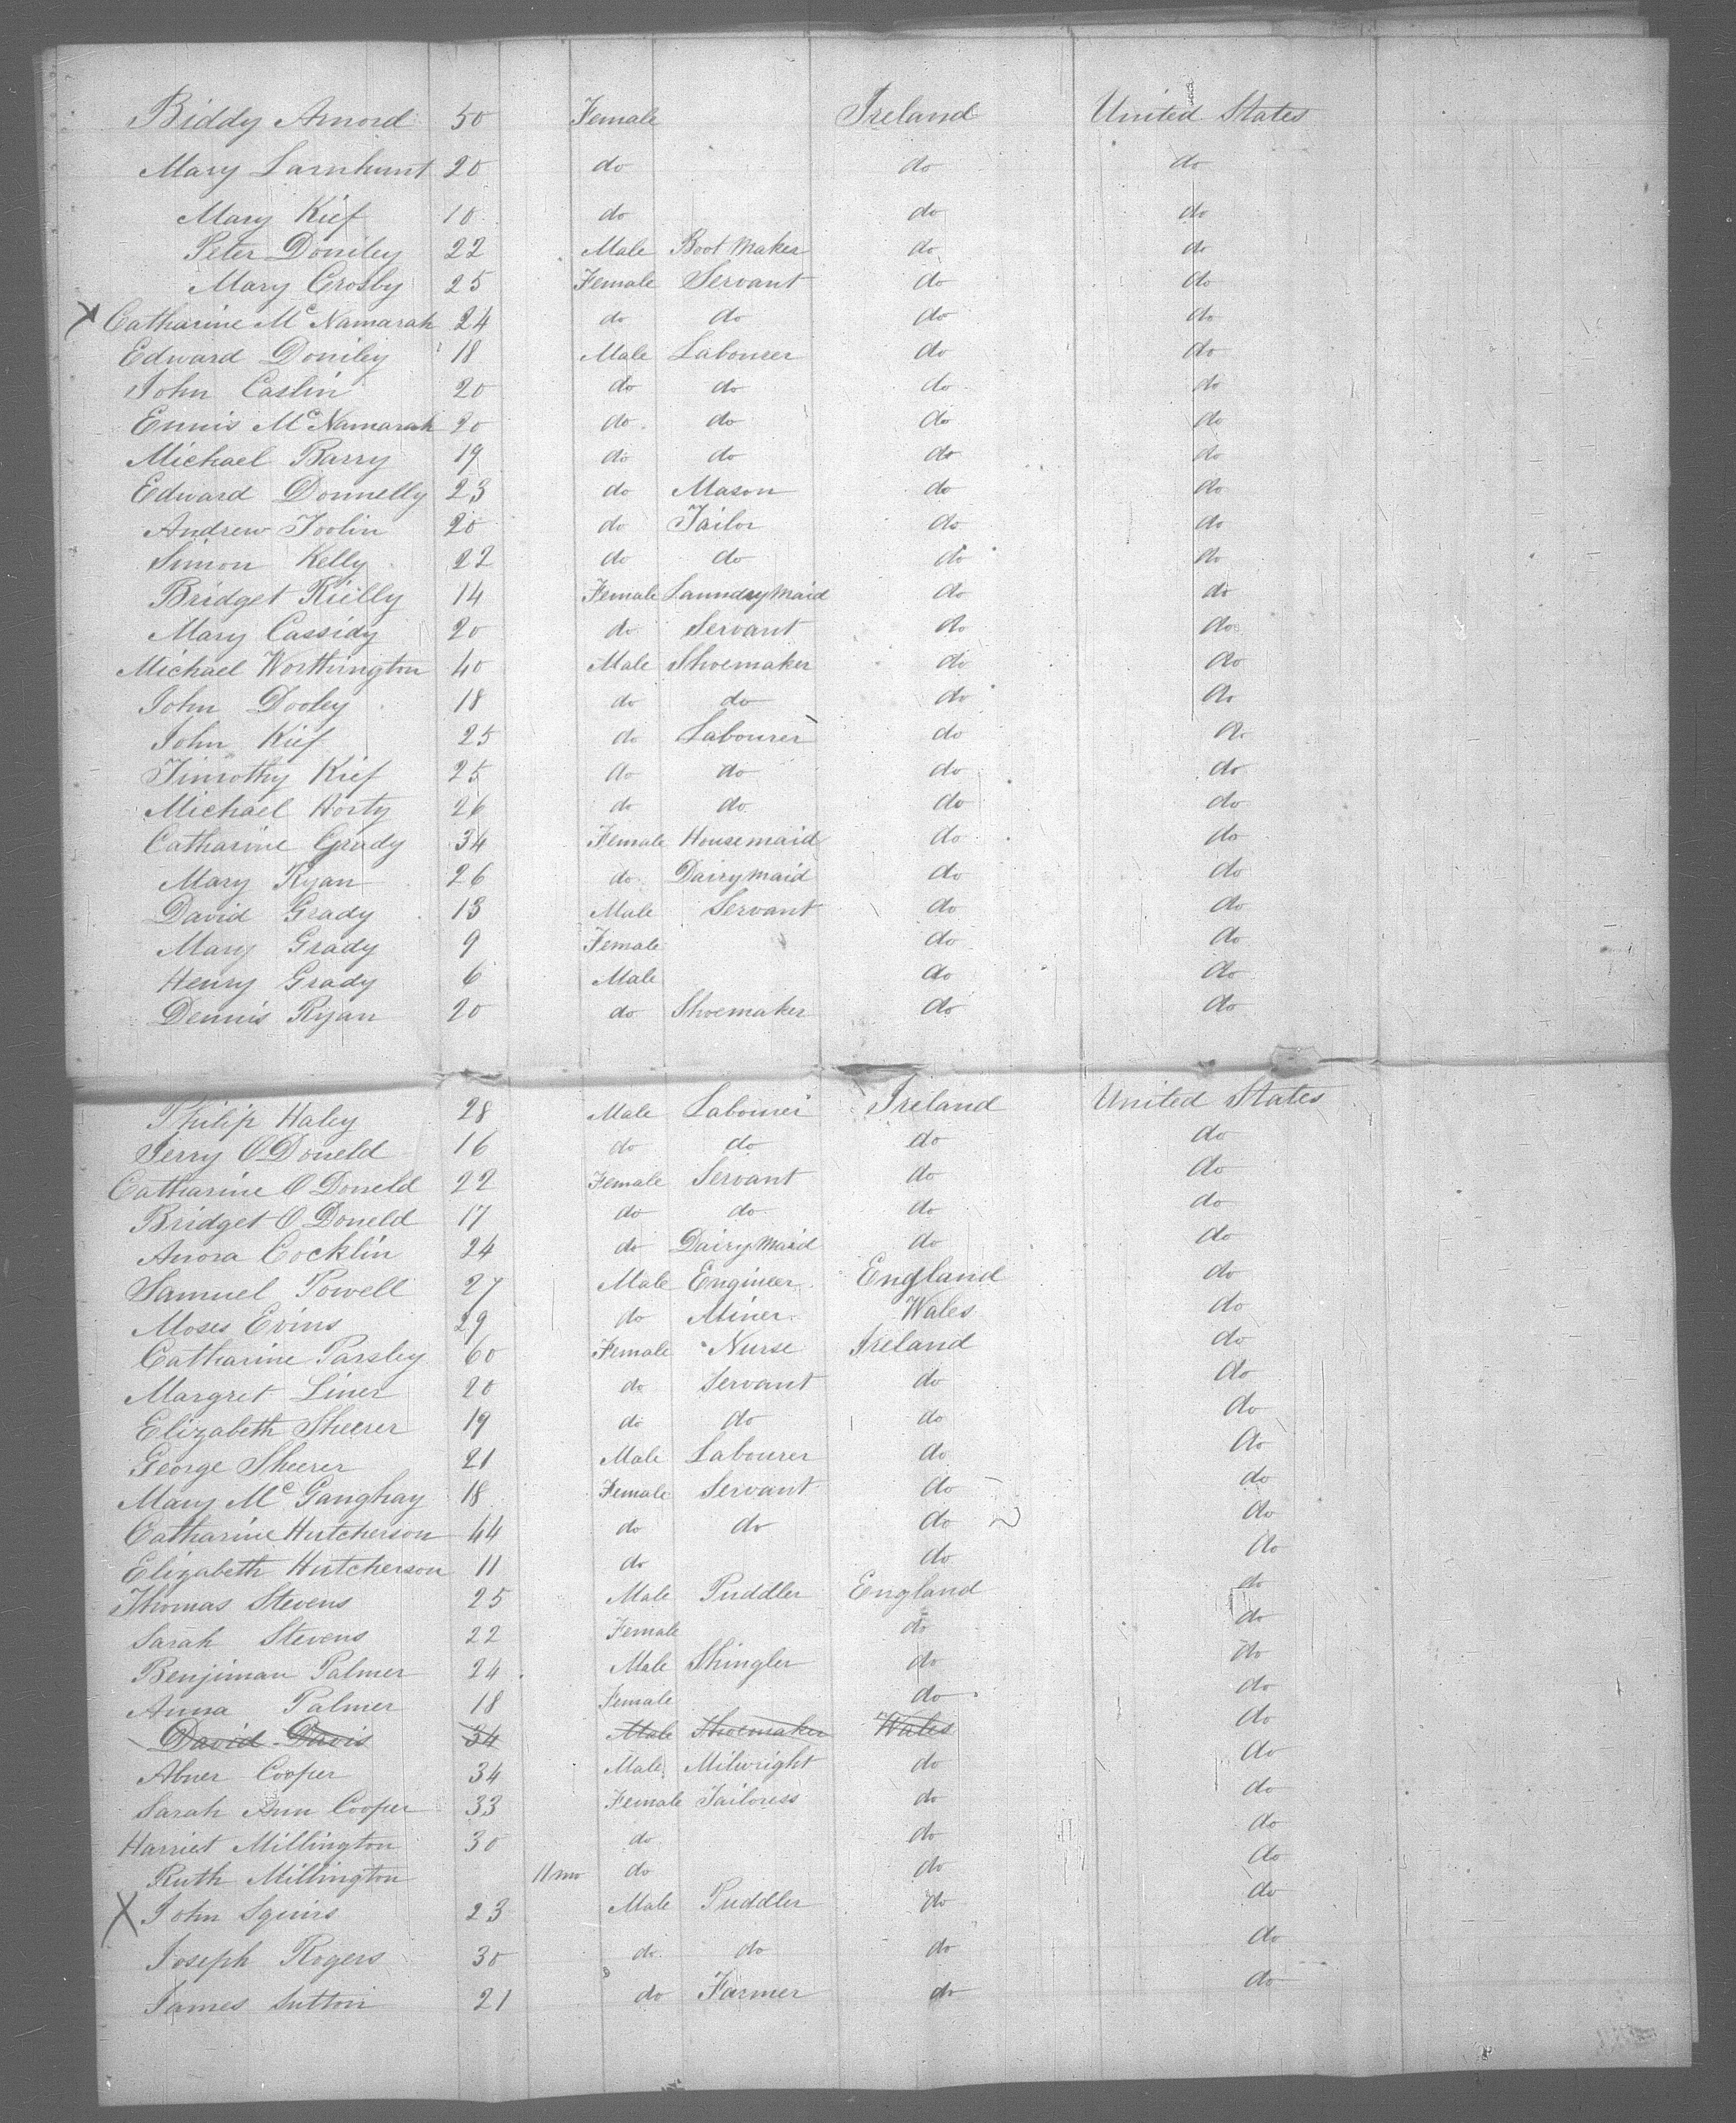 Biddy Arnord 50 Female Ireland United States
Mary Larnhunt 20 do do do
Mary Kief 10 do do do
Peter Doniley 22 Male Boot Maker do do
Mary Crosby 25 Female Servant do do
Catharine Mc Namarah 24 do do do do
Edward Doniley 18 Male Labourer do do
John Caslin 20 do do do do
Ennis Mc Namarah 20 do do do do
Michael Barry 19 do do do do
Edward Donnelly 23 do Mason do do
Andrew Toolin 20 do Tailor do do
Simon Kelly 22 do do do do
Bridget Rielly 14 Female Laundry Maid do do
Mary Cassidy 20 do Servant do do
Michael Worthington 40 Male Shoemaker do do
John Dooley 18 do do do do
John Kief 25 do Labourer do do
Timothy Kief 25 do do do do
Michael Horty 26 do do do do
Catharine Grady 34 Female Housemaid do do
Mary Ryan 26 do Dairymaid do do
David Grady 13 Male Servant do do
Mary Grady 9 Female do do
Henry Grady 6 Male do do
Dennis Ryan 20 do Shoemaker do do
Philip Haley 28 Male Labourer Ireland United States
Jerry O Doneld 16 do do do do
Catharine O Doneld 22 Female Servant do do
Bridget O Doneld 17 do do do do
Anora Cocklin 24 do Dairy Maid do do
Samuel Powell 27 Male Engineer England do
Moses Evins 29 do Miner Wales do
Catharine Parsley 60 Female Nurse Ireland do
Margret Liner 20 do Servant do do
Elizabeth Sheerer 19 do do do do
George Sheerer 21 Male Labourer do do
Mary Mc Ganghay 18 Female Servant do do
Catharine Hutcherson 44 do do do do
Elizabeth Hutcherson 11 do do do
Thomas Stevens 25 Male Puddler England do
Sarah Stevens 22 Female do do
Benjiman Palmer 24 Male Shingler do do
Anna Palmer 18 Female do do
David Davis 34 Male Shoemaker Wales do
Abner Cooper 34 Male Milwright do do
Sarah Ann Cooper 33 Female Tailoress do do
Harriet Millington 30 do do do
Ruth Millington 11 mo do do do
X John Squirs 23 Male Puddler do do
Joseph Rogers 30 do do do do
James Sutton 21 do Farmer do do